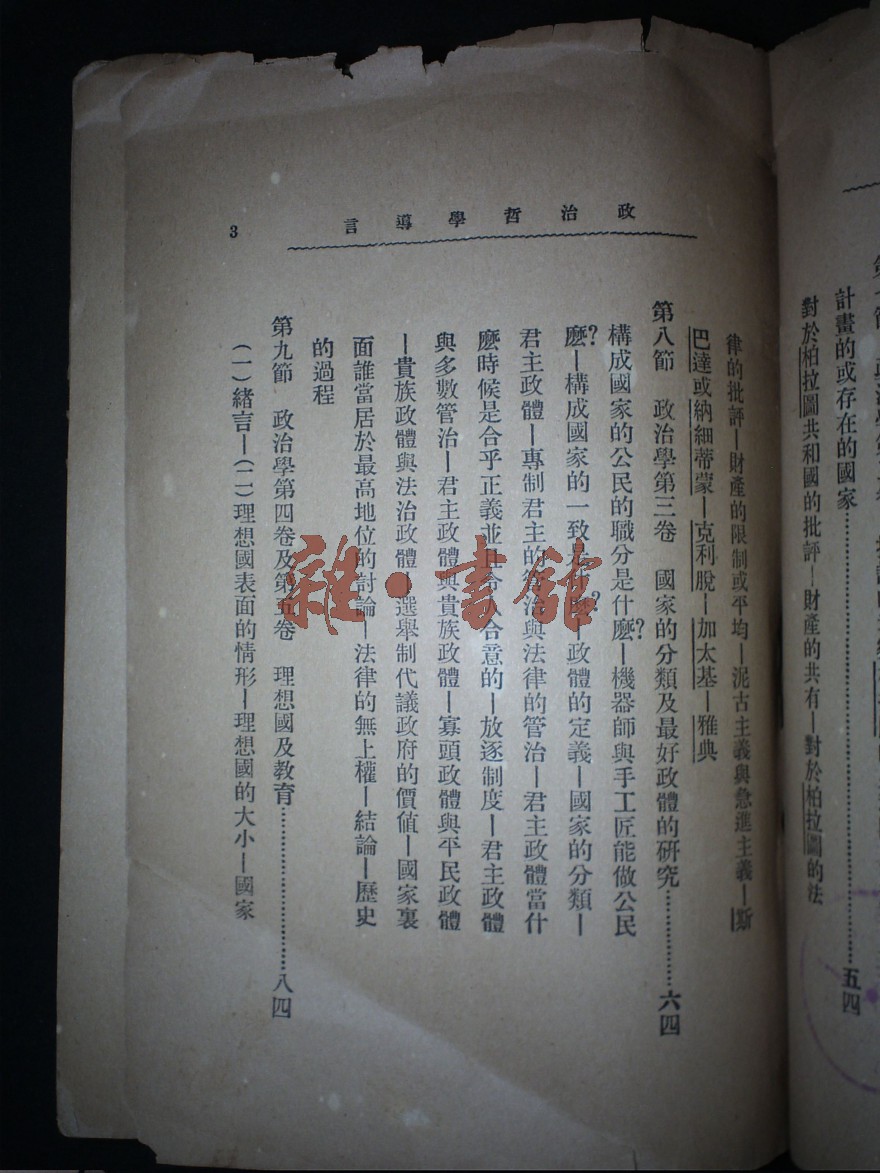 計畫的或存在的國家……………………五四
對於柏拉圖共和國的批評—財產的共有—對於柏拉圖的法
政治哲學導言
3
律的批評—財產的限制或平均—泥古主義與急進主義—斯
巴達或納細蒂蒙—克利脫—加太基—雅典
第八節 政治學第三卷 國家的分類及最好政體的研究…………六四
構成國家的公民的職分是什麼?—機器師與手工匠能做公民
麼?—構成國家的一致是什麼?—政體的定義—國家的分類—
君主政體—專制君主的管治與法律的管治—君主政體當什
麼時候是合乎正義並且合人合意的—放逐制度—君主政體
與多數管治—君主政體與貴族政體—寡頭政體與平民政體
—貴族政體與法治政體—選舉制代議政府的價值—國家裏
面誰當居於最高地位的討論—法律的無上權—結論—歷史
的過程
第九節 政治學第四卷及第五卷 理想國及教育……………………八四
(一)緒言—(二)理想國表面的情形—理想國的大小—國家
雜·書館